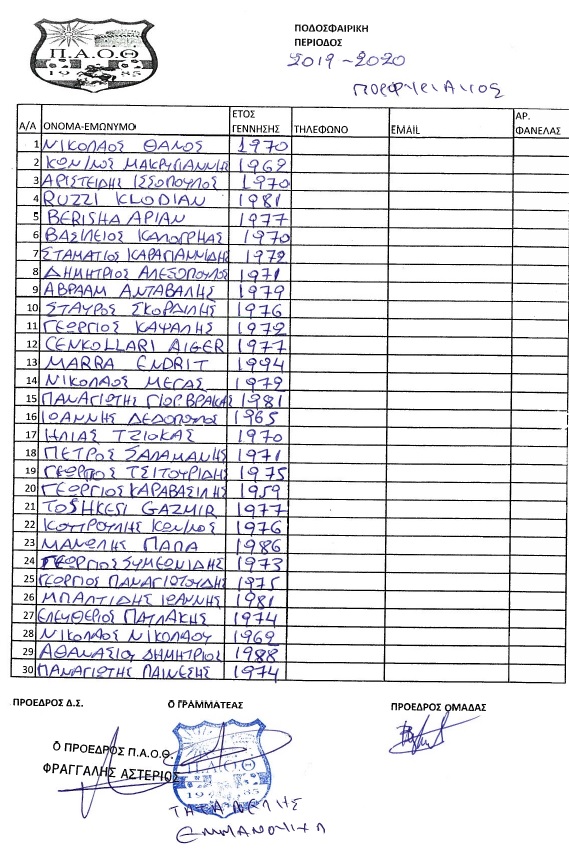 Π.Α.Ο.Θ
1985
ΠΟΔΟΣΦΑΙΡΙΚΗ
ΠΕΡΙΟΔΟΣ
2019-2020
ΠΟΡΦΥΡΙΑΚΟΣ
Α/Α ΟΝΟΜΑ-ΕΜΩΝΥΜΟ ΕΤΟΣ ΓΕΝΝΗΣΗΣ ΤΗΛΕΦΩΝΟ EMAIL ΑΡ. ΦΑΝΕΛΑΣ
1 ΝΙΚΟΛΑΟΣ ΘΑΝΟΣ 1970
2 ΚΩΝ/ΝΟΣ ΜΑΚΡΥΓΙΑΝΝΗΣ 1969
3 ΑΡΙΣΤΕΙΔΗΣ ΙΣΣΟΠΟΥΛΟΣ 1970
4 RUZZI KLODIAN 1981
5 BERISHA ARIAN 1977
6 ΒΑΣΙΛΕΙΟΣ ΚΑΛΟΓΡΗΑΣ 1970
7 ΣΤΑΜΑΤΙΟΣ ΚΑΡΑΓΙΑΝΝΙΔΗΣ 1979
8 ΔΗΜΗΤΡΙΟΣ ΑΛΕΞΟΠΟΥΛΟΣ 1971
9 ΑΒΡΑΑΜ ΑΝΤΑΒΑΛΗΣ 1979
10 ΣΤΑΥΡΟΣ ΣΚΟΡΔΙΛΗΣ 1976
11 ΓΕΩΡΓΙΟΣ ΚΑΨΑΛΗΣ 1972
12 CENKOLLARI AIGER 1977
13 MARRA ENDRIT 1994
14 ΝΙΚΟΛΑΟΣ ΜΕΓΑΣ 1979
15 ΠΑΝΑΓΙΩΤΗΣ ΓΙΟΡΒΡΑΚΑΣ 1981
16 ΙΩΑΝΝΗΣ ΔΕΔΟΠΟΥΛΟΣ 1965
17 ΗΛΙΑΣ ΤΖΙΟΚΑΣ 1970
18 ΠΕΤΡΟΣ ΣΑΛΑΜΑΝΗΣ 1971
19 ΓΕΩΡΓΙΟΣ ΤΣΙΤΟΥΡΙΔΗΣ 1975
20 ΓΕΩΡΓΙΟΣ ΚΑΡΑΒΑΣΙΛΗΣ 1959
21 TOSHKESI GAZMIR 1977
22 ΚΟΤΡΟΥΛΗΣ ΚΩΝ/ΝΟΣ 1976
23 ΜΑΝΩΛΗΣ ΠΑΠΑ 1986
24 ΓΕΩΡΓΙΟΣ ΣΥΜΕΩΝΙΔΗΣ 1973
25 ΓΕΩΡΓΙΟΣ ΠΑΝΑΓΙΩΤΟΥΔΗΣ 1975
26 ΜΠΑΛΤΙΔΗΣ ΙΩΑΝΝΗΣ 1981
27 ΕΛΕΥΘΕΡΙΟΣ ΠΑΥΛΑΚΗΣ 1974
28 ΝΙΚΟΛΑΟΣ ΝΙΚΟΛΑΟΥ 1969
29 ΑΘΑΝΑΣΙΟΥ ΔΗΜΗΤΡΙΟΣ 1988
30 ΠΑΝΑΓΙΩΤΗΣ ΠΑΙΝΕΣΗΣ 1974
ΠΡΟΕΔΡΟΣ Δ.Σ. Ο ΓΡΑΜΜΑΤΕΑΣ ΠΡΟΕΔΡΟΣ ΟΜΑΔΑΣ
Ο ΠΡΟΕΔΡΟΣ Π.Α.Ο.Θ.
ΦΡΑΓΓΑΛΗΣ ΑΣΤΕΡΙΟΣ
Π.Α.Ο.Θ
ΕΜΜΑΝΟΥΗΛ